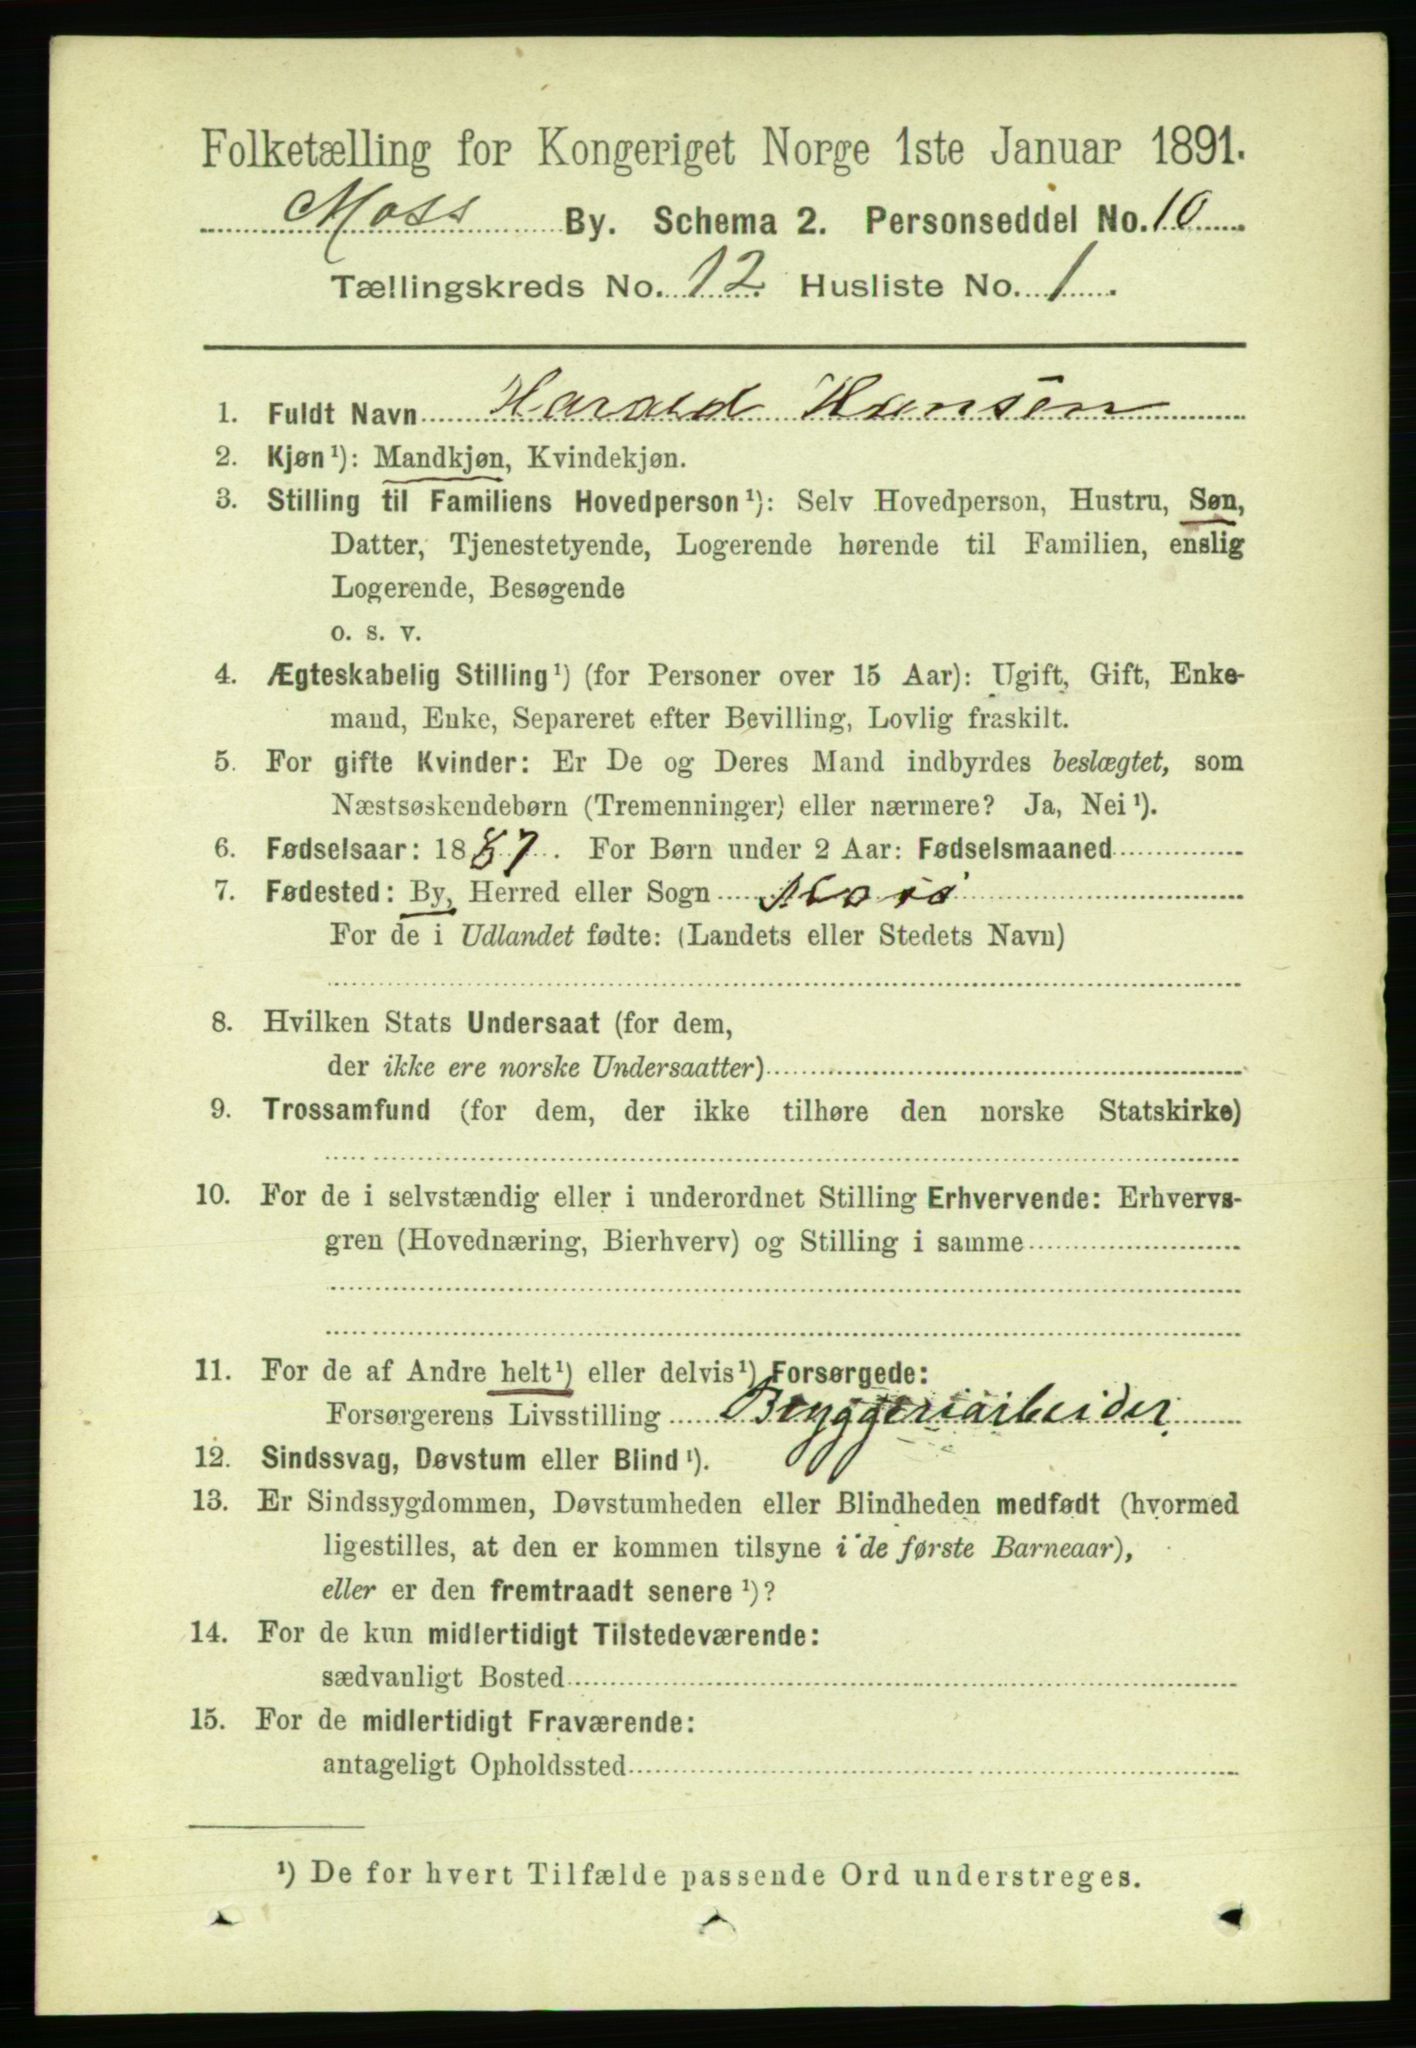 Folketælling for Kongeriget Norge 1ste Januar 1891.
Moss By. Schema 2. Personseddel No. 10
Tællingskreds No. 12 Husliste No. 1
1. Fuldt Navn Harald Hansen
2. Kjøn ¹): Mandkjøn, Kvindekjøn.
3. Stilling til Familiens Hovedperson ¹): Selv Hovedperson, Hustru, Søn,
Datter, Tjenestetyende, Logerende hørende til Familien, enslig
Logerende, Besøgende
o. s. v.
4. Ægteskabelig Stilling ¹) (for Personer over 15 Aar): Ugift, Gift, Enke-
mand, Enke, Separeret efter Bevilling, Lovlig fraskilt.
5. For gifte Kvinder: Er De og Deres Mand indbyrdes beslægtet, som
Næstsøskendebørn (Tremenninger) eller nærmere? Ja, Nei ¹).
6. Fødselsaar: 1887. For Børn under 2 Aar: Fødselsmaaned
7. Fødested: By, Herred eller Sogn Moss
For de i Udlandet fødte: (Landets eller Stedets Navn)
8. Hvilken Stats Undersaat (for dem,
der ikke ere norske Undersaatter)
9. Trossamfund (for dem, der ikke tilhøre den norske Statskirke)
10. For de i selvstændig eller i underordnet Stilling Erhvervende: Erhvervs-
gren (Hovednæring, Bierhverv) og Stilling i samme
11. For de af Andre helt ¹) eller delvis ¹) Forsørgede:
Forsørgerens Livsstilling Bryggeriarbeider
12. Sindssvag, Døvstum eller Blind ¹).
13. Er Sindssygdommen, Døvstumheden eller Blindheden medfødt (hvormed
ligestilles, at den er kommen tilsyne i de første Barneaar),
eller er den fremtraadt senere ¹)?
14. For de kun midlertidigt Tilstedeværende:
sædvanligt Bosted
15. For de midlertidigt Fraværende:
antageligt Opholdssted
¹) De for hvert Tilfælde passende Ord understreges.